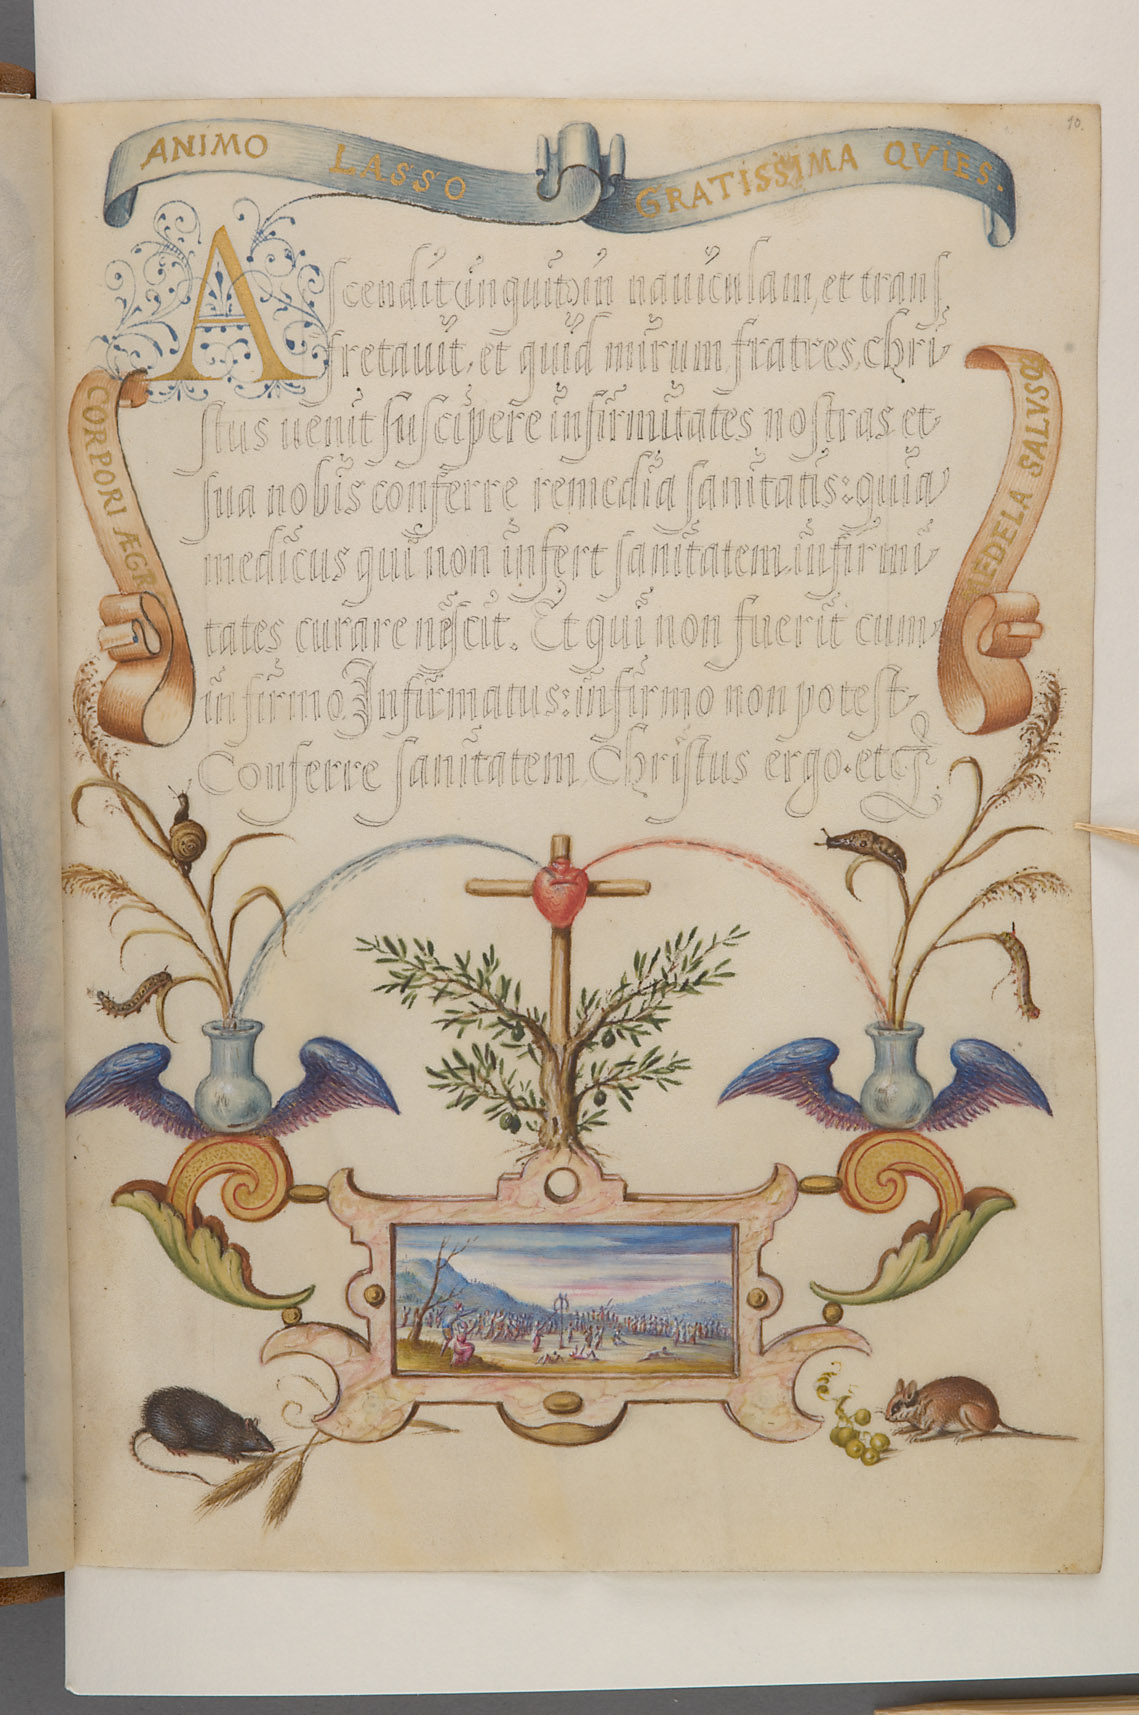 10.
ANIMO LASSO GRATISSIMA QVIES.
Ascendit (inquit) in nauiculam, et trans
fretauit, et quid mirum, fratres, Chri
stus uenit suscipere infirmitates nostras et
sua nobis conferre remedia sanitatis: quia
medicus qui non infert sanitatem infirmi
tates curare nescit. Et qui non fuerit cum
infirmo Infirmatus: infirmo non potest
Conferre sanitatem. Christus ergo. etc.
CORPORI ÆGR
MEDELA SALVSQ